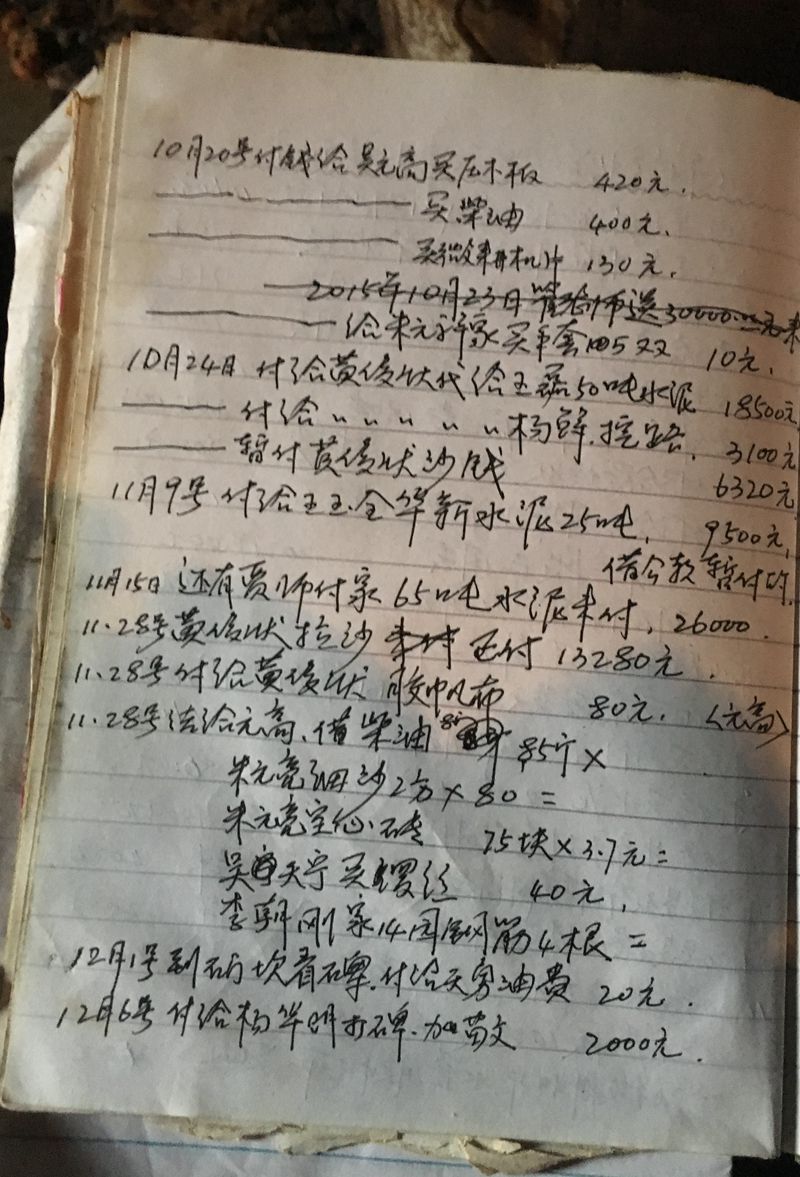 10月20号付钱给吴元高买压木板 420元.
——— ——— 买柴油 400元.
——— ——— 买微耕机 130元.
2015年10月23日 送30000.00元来
——— 给朱元祥家买手套 5双 10元.
10月24日 付给黄俊状代给王磊50吨水泥 18500元
—— 付给 〃 〃 〃 〃 〃 杨锋.挖路. 3100元
—— 暂付黄俊状沙钱 6320元
11月9号 付给王玉全华新水泥25吨. 9500元.
借公款暂付的.
11月15日 还有贾师付家65吨水泥未付. 26000.
11.28号黄俊状拉沙未付 还付13280元.
11.28号付给黄俊状 胶帆布 80元. <元高>
11.28号 给元高.借柴油 85斤×
朱元亮细沙2方×80=
朱元亮空心砖 75块×3.7元=
吴天宁买螺丝 40元.
李朝刚家14圆钢筋4根=
12月1号到石坎看碑.付给天宁油费 20元.
12月6号 付给杨华明打碑.加苗文 2000元.